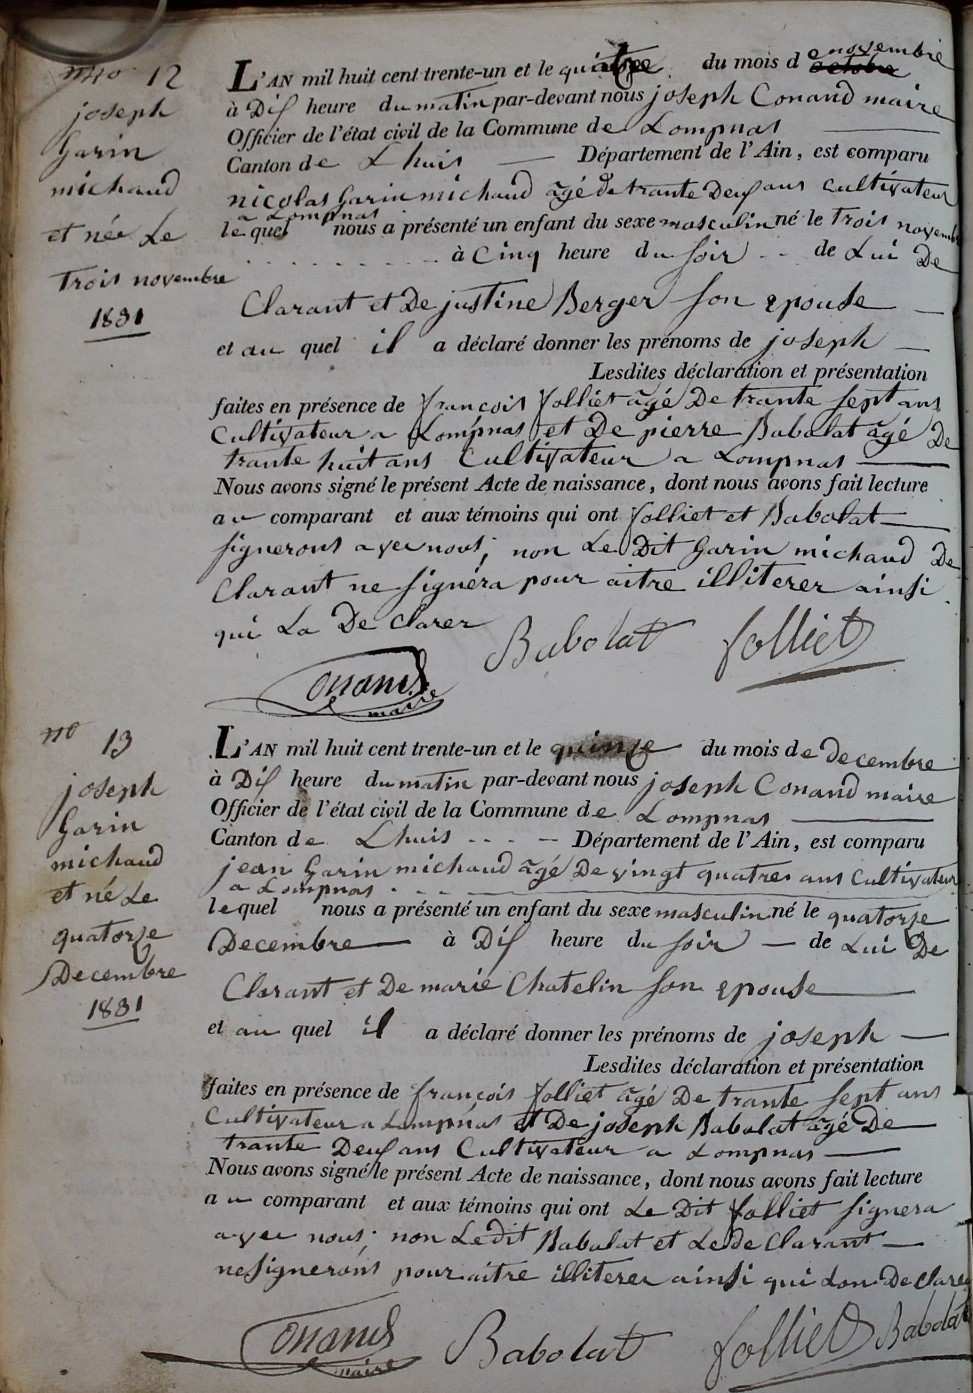 nro 12
joseph
Garin
michaud
et née Le
Trois novembre
1831
L'AN mil huit cent trente-un et le quatre du mois de novembre
à Dix heure du matin par-devant nous joseph Conand maire
Officier de l'état civil de la Commune de Lompnas
Canton de Lhuis Département de l'Ain, est comparu
nicolas Garin michaud âgé de trante Deux ans cultivateur
a Lompnas
lequel nous a présenté un enfant du sexe masculin né le Trois novembre
à Cinq heure du soir de Lui De
Clarant et De justine Berger son epouse
et au quel il a déclaré donner les prénoms de joseph
Lesdites déclaration et présentation
faites en présence de françois folliet âgé De trante sept ans
Cultivateur a Lompnas et De pierre Babolat âgé De
trante huit ans Cultivateur a Lompnas
Nous avons signé le présent Acte de naissance, dont nous avons fait lecture
au comparant et aux témoins qui ont folliet et Babolat
signerons avec nous; non Le Dit Garin michaud De
Clarant ne signéra pour aitre illiterer ainsi
qui La De Clarer
Babolat folliet
Conand
maire
no 13
joseph
Garin
michaud
et né Le
quatorze
Decembre
1831
L'AN mil huit cent trente-un et le quinze du mois de decembre
à Dix heure du matin par-devant nous joseph Conand maire
Officier de l'état civil de la Commune de Lompnas
Canton de Lhuis Département de l'Ain, est comparu
jean Garin michaud âgé De vingt quatres ans Cultivateur
a Lompnas
lequel nous a présenté un enfant du sexe masculin né le quatorze
Decembre à Dix heure du soir de Lui De
Clarant et De marie Chatelin son epouse
et au quel il a déclaré donner les prénoms de joseph
Lesdites déclaration et présentation
faites en présence de françois folliet âgé De trante sept ans
Cultivateur a Lompnas et De joseph Babolat âgé De
trante Deux ans Cultivateur a Lompnas
Nous avons signé le présent Acte de naissance, dont nous avons fait lecture
au comparant et aux témoins qui ont Le Dit folliet signera
avec nous; non Ledit Babolat et Lede Clarant
ne signerons pour aitre illiterer ainsi qui Lon De clarer
Conand
maire
Babolat folliet Babolat